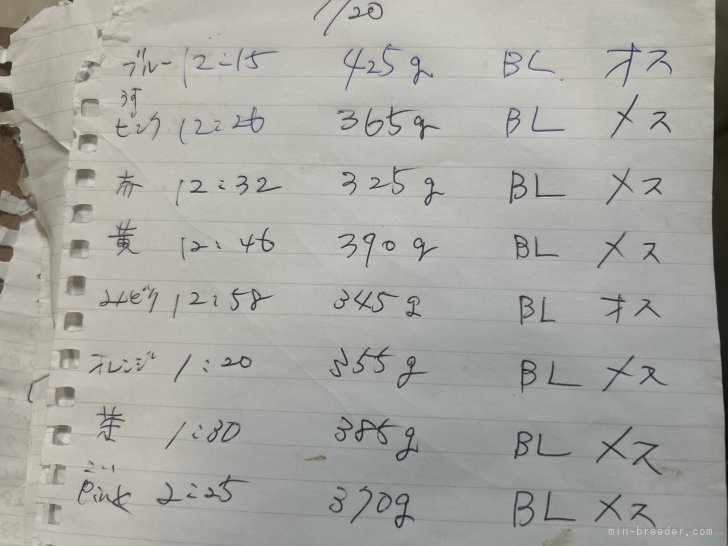 1/20
ブルー 12:15 425g BL. オス
ピンク 12:26 365g BL メス
赤 12:32 325g BL メス
黄 12:46 390g BL メス
12:58 345g BL オス
オレンジ 1:20 355g BL メス
茶 1:30 385g BL メス
こい
Pink 2:25 370g BL メス
min-breeder.com